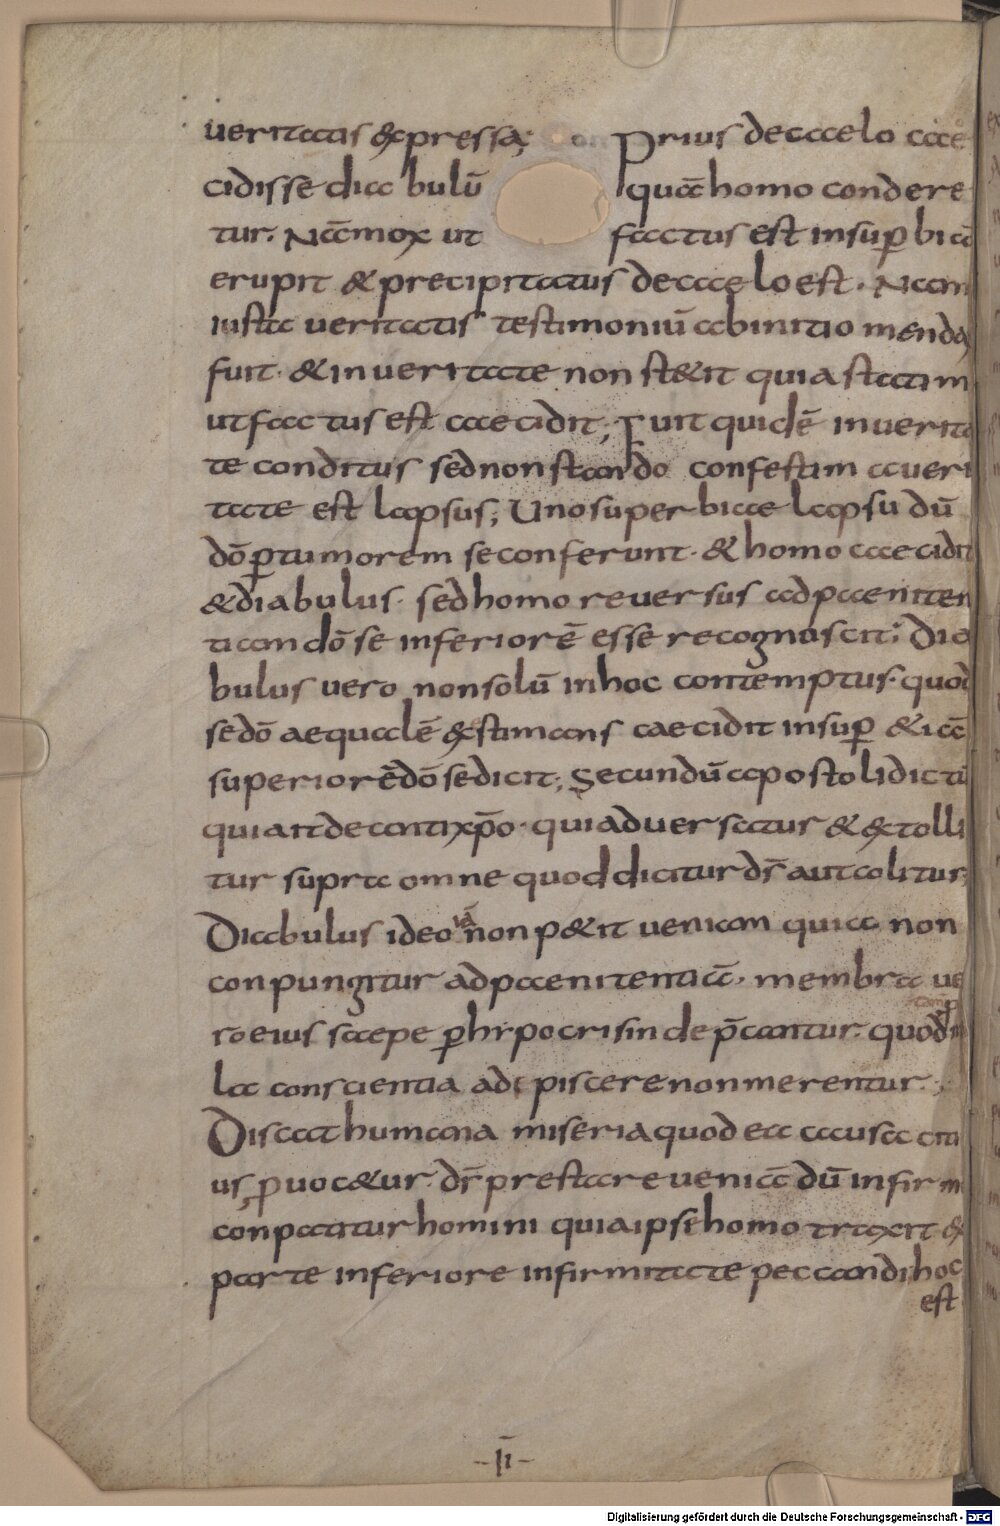 ueritatis expressa; Prius decaelo cace
cidisse diabulū quā homo condere
tur. Nā mox ut factus est insuꝑbiā
erupit & precipitatus decaelo est. Nam
iusta ueritatis testimoniū abinitio mendax
fuit. & inueritate non st&it quia statim
utfactus est caecidit; Fuit quidē inuerita
te conditus sednonstando confestim aueri
tate est lapsus; Unosuperbiae lapsu dū
dō ꝑtumorem seconferunt. & homo caecidit
& diabulus. sedhomo reuersus adpaeniten
tiam dō se inferiorē esse recognuscit; Dia
bulus uero nonsolū inhoc contemptus. quod
sedō aequalē exstimans caecidit insuꝑ & iā
superiorē dō sedicit; Secundū apostoli dictū
quiait de antixp̄o. quiaduersatus & extolli
tur supra omne quod dicitur d̄s aut colitur;
Diabulus ideo iā non p&it ueniam quia non
conpungitur adpaenitentiā. membra ue
ro eius saepe ꝑ hipocrisin dep̄cantur. quod
la conscientia adipiscere nonmerentur.
Discat humana miseria quod ea causa citi
us ꝓuoc&ur. d̄s prestare ueniā dū infirm
conpatitur homini quiaipse homo traxit ex
parte inferiore infirmitate peccandi hoc
est
-II-
Digitalisierung gefördert durch die Deutsche Forschungsgemeinschaft - DFG